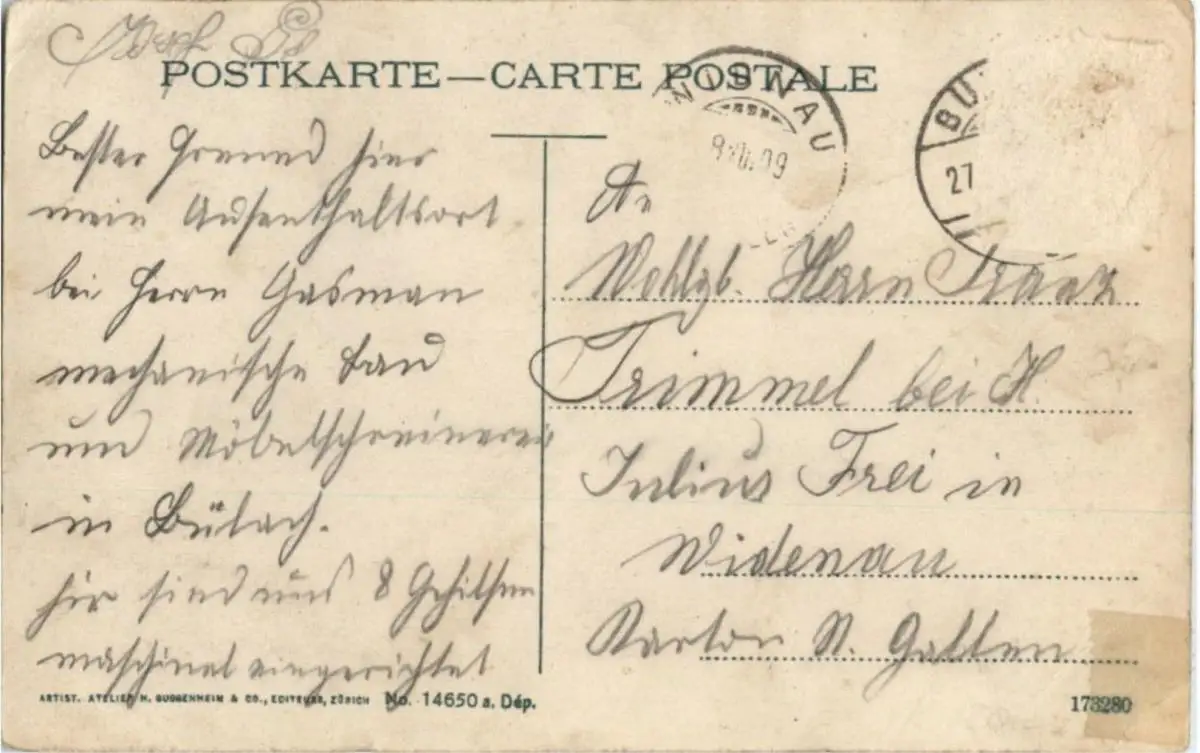 POSTKARTE — CARTE POSTALE
WIDNAU
9.VII.09
BÜ
27
Bester Freund hier
mein Aufenthaltsort
bei Herrn Gasman
mechanische Bau
und Möbelschreinerei
in Bülach.
hir sind uns 8 Gehilfen
maschinel eingerichtet
An
Wohlgb. Herrn Franz
Trimmel bei H.
Julius Frei in
Widenau
Kanton St. Gallen
ARTIST. ATELIER H. GUGGENHEIM & CO., EDITEURS, ZÜRICH No. 14650 a. Dép.
173280